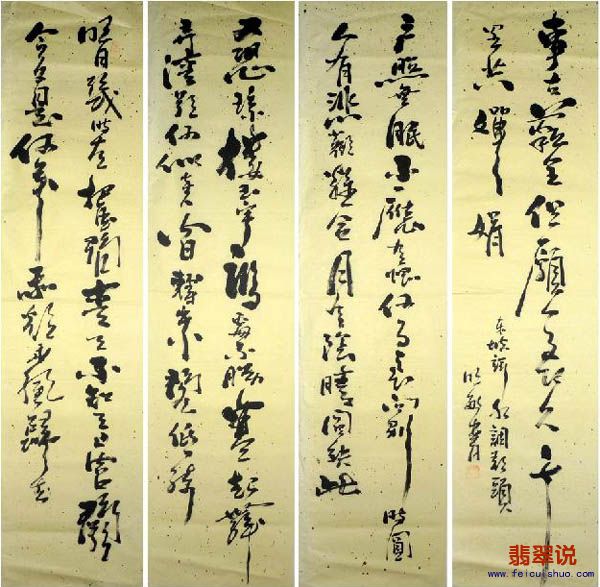 明月幾時有把酒問青天不知天上宮闕
今夕是何年我欲乘風歸去
又恐瓊樓玉宇高處不勝寒起舞
弄清影何似在人間轉朱閣低綺
戶照無眠不應有恨何事長向別時圓
人有悲歡離合月有陰晴圓缺此
事古難全但願人長久千
里共嬋娟
東坡詞水調歌頭
書
翡翠说
www.feicuishuo.com